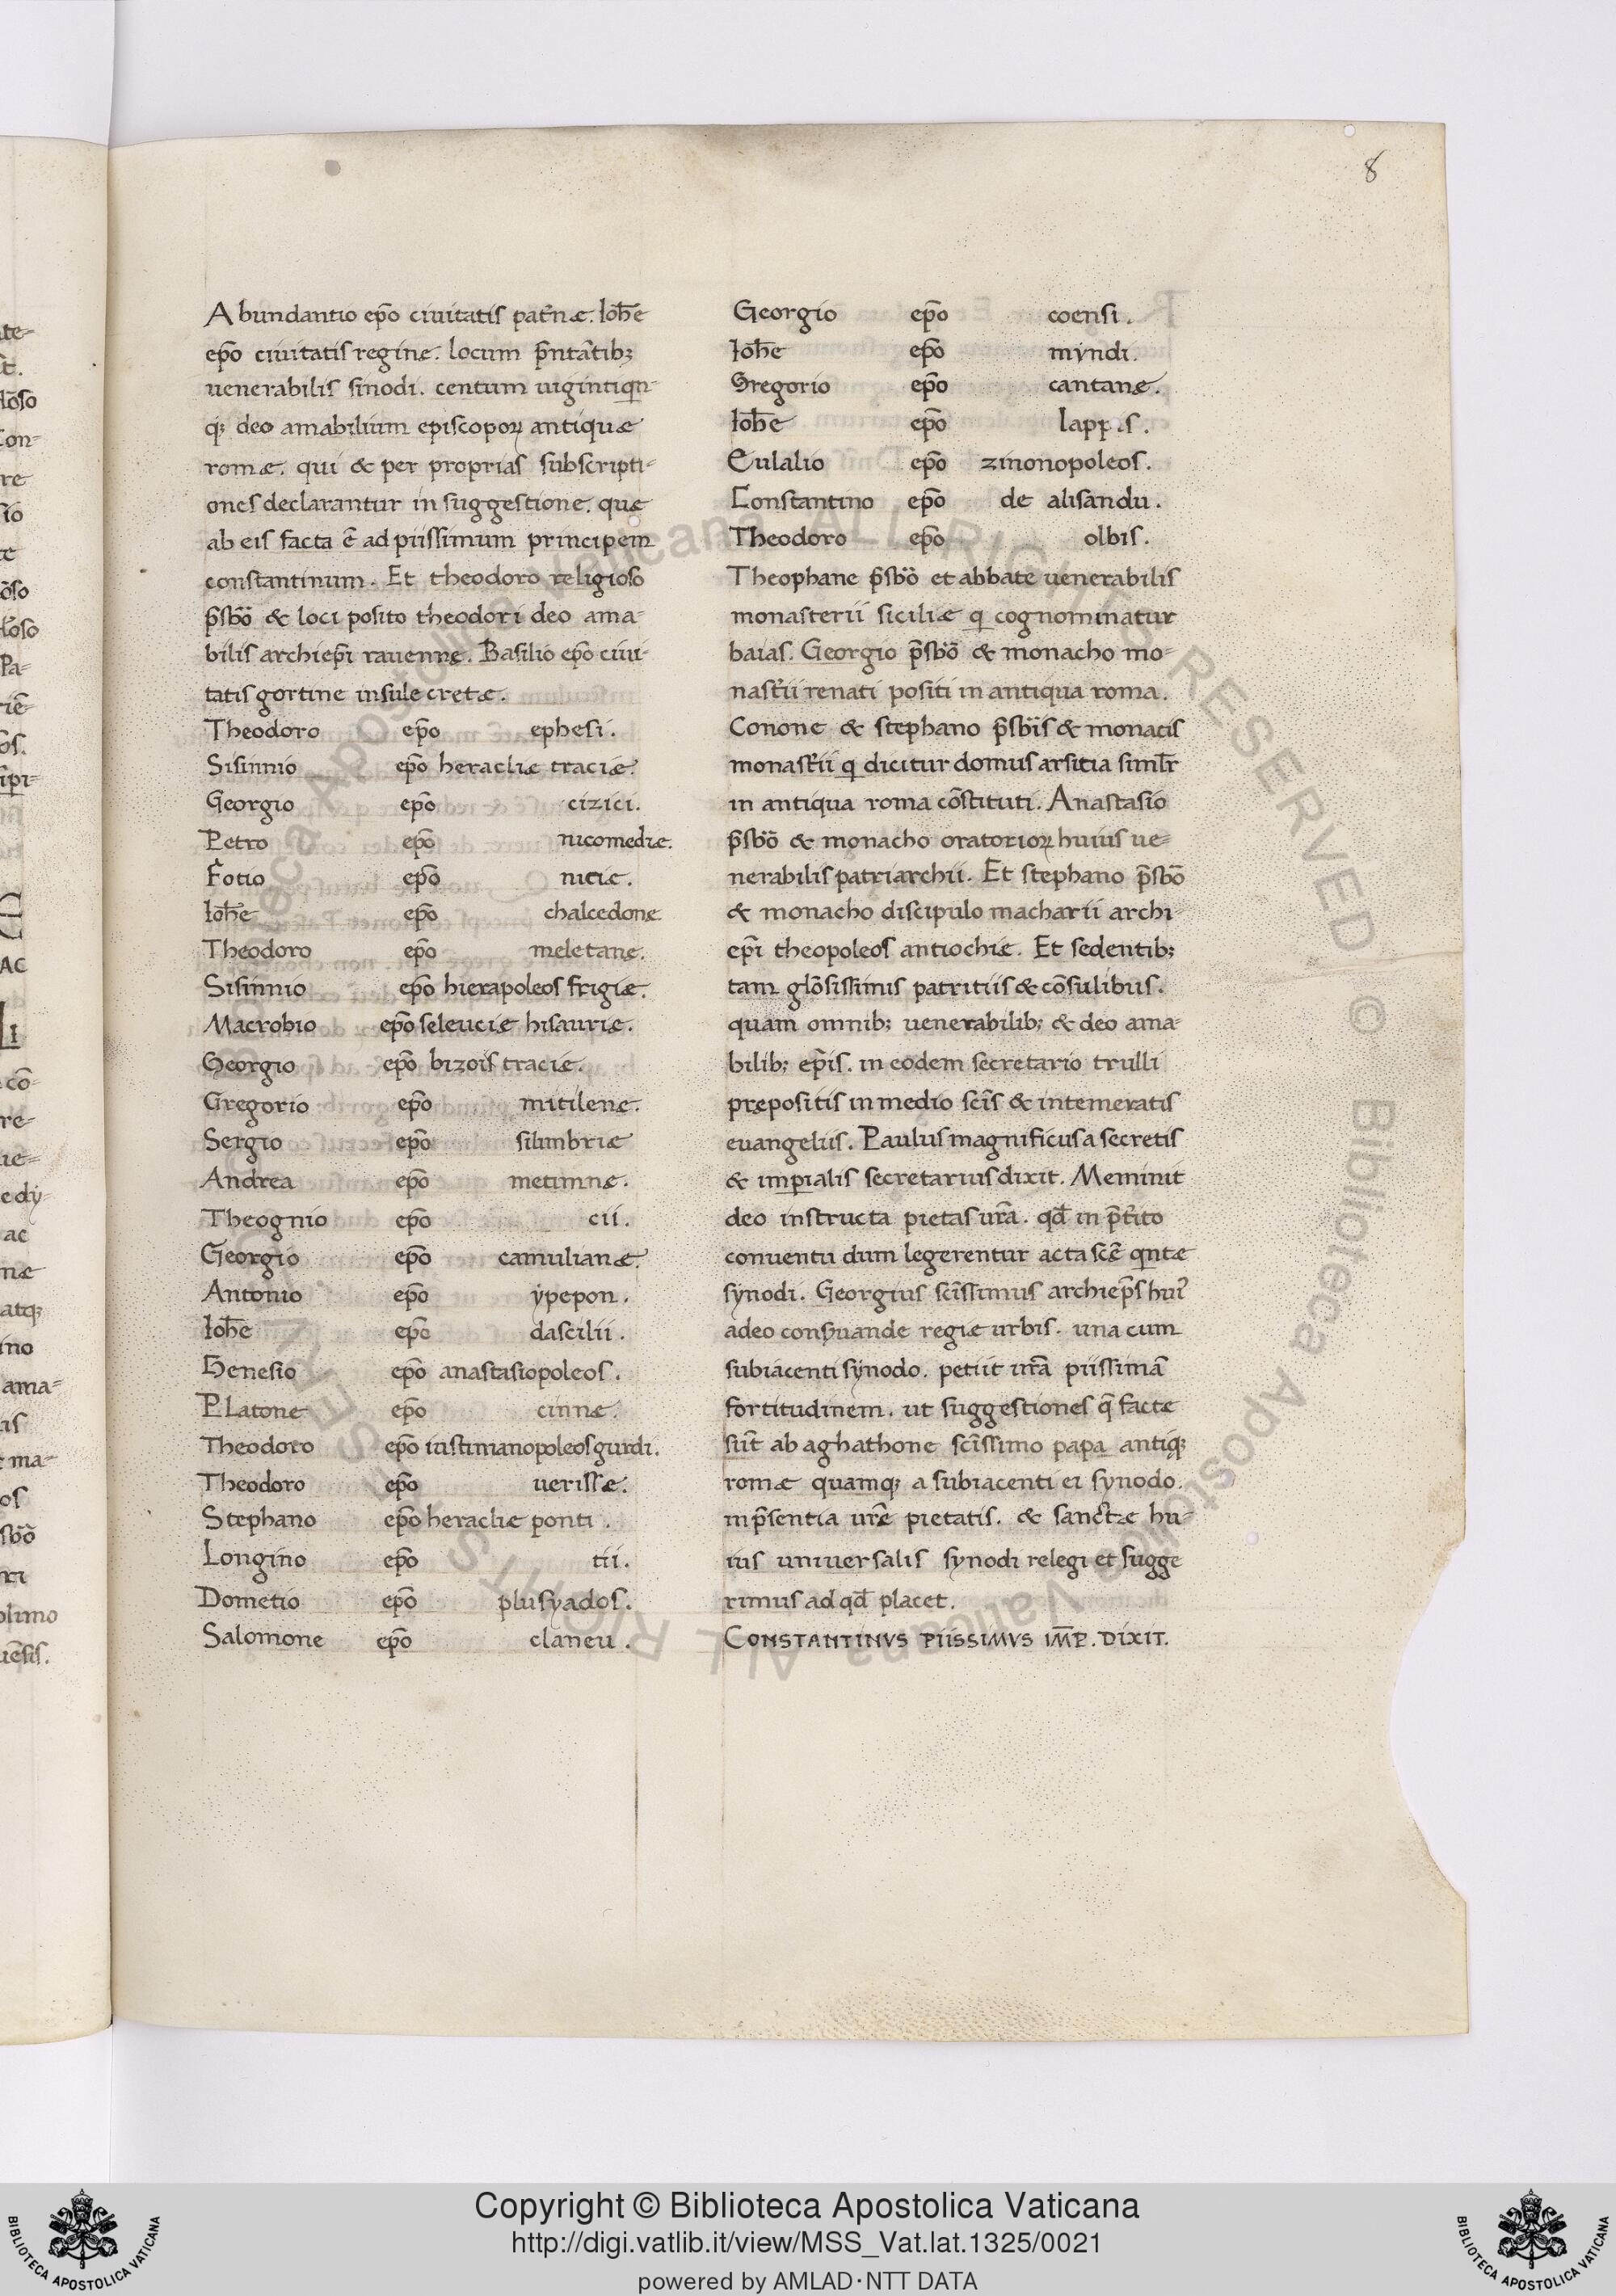 8
Abundantio ep̄o ciuitatis pat̄næ. Ioh̄e
ep̄o ciuitatis regine. locum p̄ntātib;
uenerabilis sinodi. centum uigintiqin-
q; deo amabilium episcoporꝝ antiquæ
romæ. qui & per proprias subscripti-
ones declarantur in suggestione. quę
ab eis facta ē ad piissimum principem
constantinum. Et theodoro religioso
p̄sb̄o & loci posito theodori deo ama-
bilis archiep̄i rauennę. Basilio ep̄o ciui-
tatis gortine insule cretæ.
Theodoro ep̄o ephesi.
Sisinnio ep̄o heracliæ traciæ.
Georgio ep̄o cizici.
Petro ep̄o nicomediæ.
Fotio ep̄o niciæ.
Ioh̄e ep̄o chalcedone
Theodoro ep̄o meletanę.
Sisinnio ep̄o hierapoleos frigiæ.
Macrobio ep̄o seleuciæ hisauriæ.
Georgio ep̄o bizois traciæ.
Gregorio ep̄o mitilenę.
Sergio ep̄o silimbriæ
Andrea ep̄o metimnę.
Theognio ep̄o cii.
Georgio ep̄o camulianæ.
Antonio ep̄o ypepon.
Ioh̄e ep̄o dascilii.
Genesio ep̄o anastasiopoleos.
Platone ep̄o cinnę.
Theodoro ep̄o iustinianopoleos gurdi.
Theodoro ep̄o uerissæ.
Stephano ep̄o heracliæ ponti.
Longino ep̄o tii.
Dometio ep̄o plusyados.
Salomone ep̄o claneu.
Georgio ep̄o coensi.
Ioh̄e ep̄o myndi.
Gregorio ep̄o cantanę.
Ioh̄e ep̄o
Eulalio ep̄o zinonopoleos.
Constantino ep̄o de alisandu.
Theodoro ep̄o olbis.
Theophane p̄sb̄o et abbate uenerabilis
monasterii siciliæ q cognominatur
baias. Georgio p̄sb̄o & monacho mo-
nast̄ii renati positi in antiqua roma.
Conone & stephano p̄sb̄is & monacis
monast̄ii q dicitur domus arsitia simlr̄
in antiqua roma cōstituti. Anastasio
p̄sb̄o & monacho oratoriorꝝ huius ue-
nerabilis patriarchii. Et stephano p̄sb̄o
& monacho discipulo macharii archi-
ep̄i theopoleos antiochiæ. Et sedentib;
tam glōsissimis patritiis & cōsulibus.
quam omnib; uenerabilib; & deo ama-
bilib; ep̄is. in eodem secretario trulli
prępositis in medio sc̄is & intemeratis
euangeliis. Paulus magnificus a secretis
& imꝑialis secretarius dixit. Meminit
deo instructa pietas ur̄a. qd̄ in p̄t̄ito
conuentu dum legerentur acta sc̄ę qintæ
synodi. Georgius sc̄issimus archiep̄s hui᾽
a deo conseruande regiæ urbis. una cum
subiacenti synodo. petiit ur̄ā piissimā
fortitudinem. ut suggestiones q̄ factę
sūt ab aghathone sc̄issimo papa antiq;
romæ quamq; a subiacenti ei synodo.
in p̄sentia ur̄ę pietatis. & sanctæ hu-
ius uniuersalis synodi relegi et sugge
rimus ad qd̄ placet.
CONSTANTINVS PIISSIMVS IM̄P. DIXIT.
Copyright © Biblioteca Apostolica Vaticana
http://digi.vatlib.it/view/MSS_Vat.lat.1325/0021
powered by AMLAD·NTT DATA
BIBLIOTECA APOSTOLICA VATICANA
BIBLIOTECA APOSTOLICA VATICANA